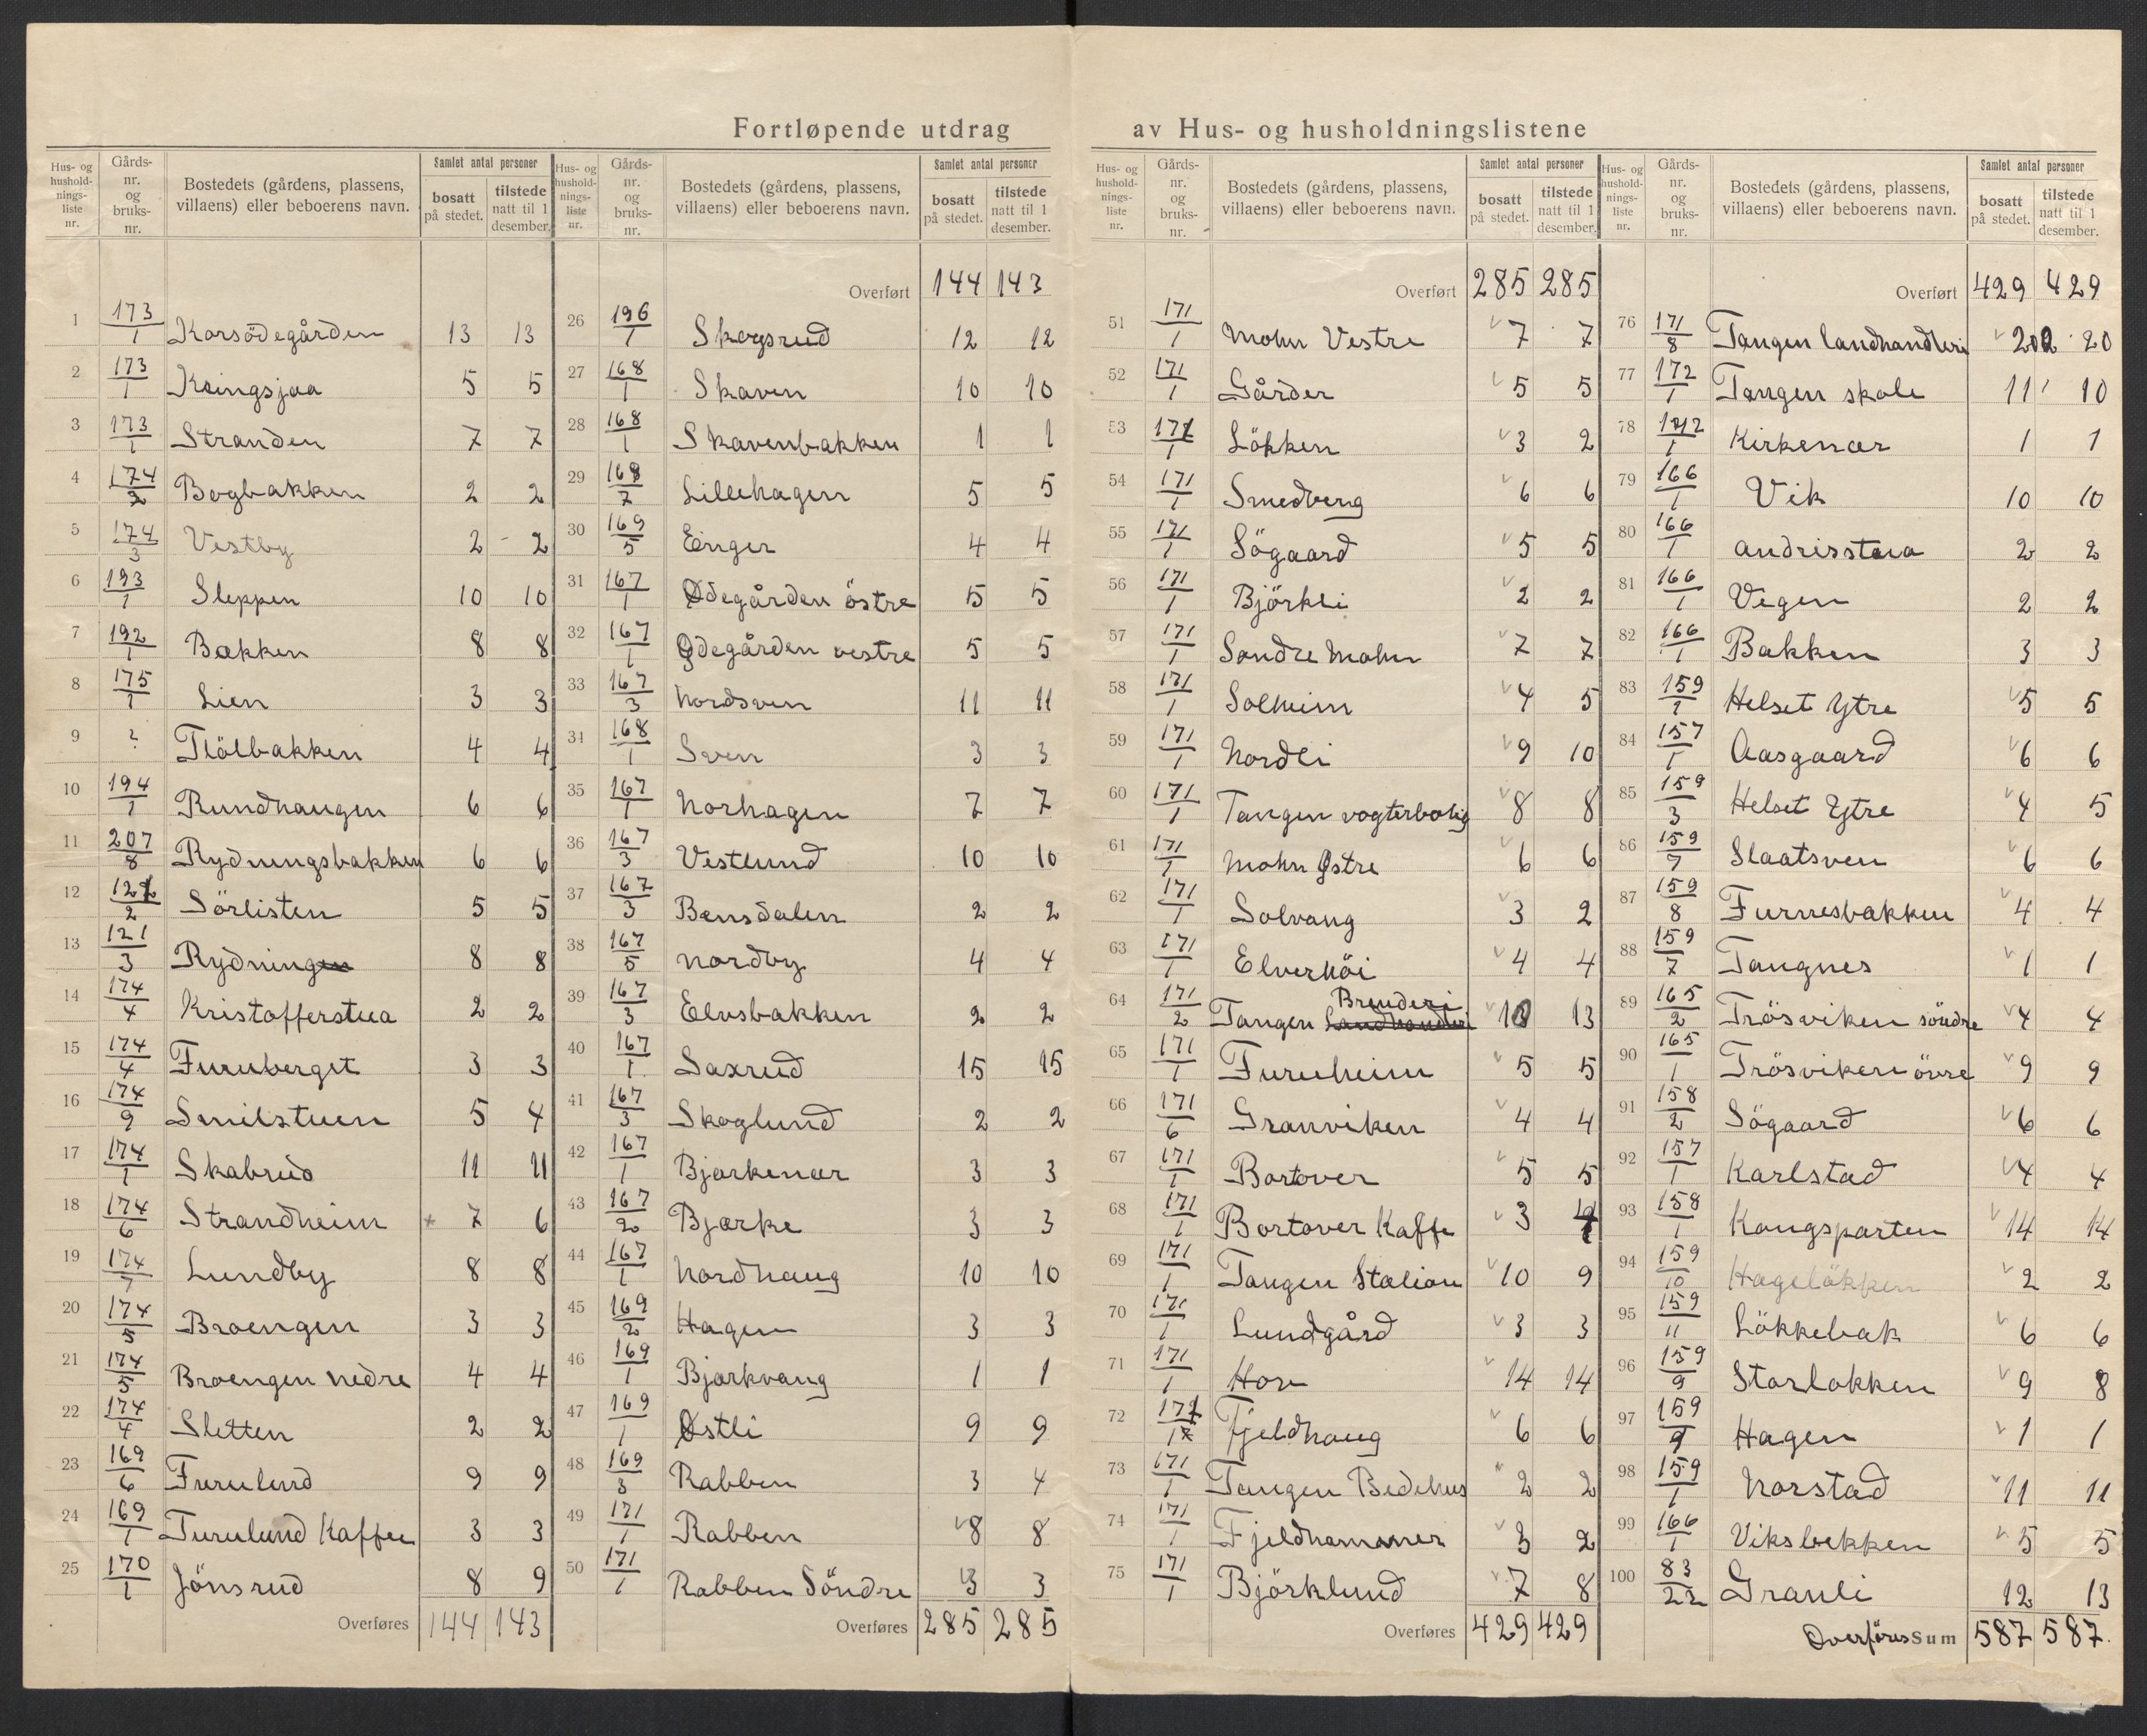 Fortløpende utdrag av Hus- og husholdningslistene
Hus- og husholdnings-liste nr. | Gårds-nr. og bruks-nr. | Bostedets (gårdens, plassens, villaens) eller beboerens navn. | Samlet antal personer bosatt på stedet. | tilstede natt til 1 desember.
1 173/1 Korsödegården 13 13
2 173/1 Kringsjaa 5 5
3 173/1 Stranden 7 7
4 174/2 Bogbakken 2 2
5 174/3 Vestby 2 - 2
6 193/1 Sleppen 10 10
7 192/1 Bakken 8 8
8 175/1 Lien 3 3
9 ? Flölbakken 4 4
10 194/1 Rundhaugen 6 6
11 207/8 Rydningsbakken 6 6
12 121/2 Sörlisten 5 5
13 121/3 Rydningen 8 8
14 174/4 Kristofferstua 2 2
15 174/4 Furuberget 3 3
16 174/9 Smilstuen 5 4
17 174/1 Skabrud 11 11
18 174/6 Strandheim × 7 6
19 174/7 Lundby 8 8
20 174/5 Broengen 3 3
21 174/5 Broengen nedre 4 4
22 174/4 Sletten 2 2
23 169/6 Furulund 9 9
24 169/1 Furulund Kaffee 3 3
25 170/1 Jönsrud 8 9
Overføres 144 143
Hus- og husholdnings-liste nr. | Gårds-nr. og bruks-nr. | Bostedets (gårdens, plassens, villaens) eller beboerens navn. | Samlet antal personer bosatt på stedet. | tilstede natt til 1 desember.
Overført 144 143
26 196/1 Skogsrud 12 12
27 168/1 Skaven 10 10
28 168/1 Skavenbakken 1 1
29 168/7 Lillehagen 5 5
30 169/5 Einger 4 4
31 167/1 Ødegården östre 5 5
32 167/1 Ødegården vestre 5 5
33 167/3 Nordsven 11 11
34 168/1 Sven 3 3
35 167/1 Norhagen 7 7
36 167/3 Vestlund 10 10
37 167/3 Bensdalen 2 2
38 167/5 Nordby 4 4
39 167/3 Elvsbakken 2 2
40 167/1 Saxrud 15 15
41 167/3 Skoglund 2 2
42 167/1 Bjarkenær 3 3
43 167/20 Bjærke 3 3
44 167/1 Nordhaug 10 10
45 169/2 Hagen 3 3
46 169/1 Bjarkvang 1 1
47 169/1 Østli 9 9
48 169/3 Rabben 3 4
49 171/1 Rabben 8 8
50 171/1 Rabben Söndre 3 3
Overføres 285 285
Hus- og husholdnings-liste nr. | Gårds-nr. og bruks-nr. | Bostedets (gårdens, plassens, villaens) eller beboerens navn. | Samlet antal personer bosatt på stedet. | tilstede natt til 1 desember.
Overført 285 285
51 171/1 Mohn Vestre 7 7
52 171/1 Gårder 5 5
53 171/1 Lökken 3 2
54 171/1 Smedberg 6 6
55 171/1 Sögaard 5 5
56 171/1 Björkli 2 2
57 171/1 Söndre Mohn 7 7
58 171/1 Solheim 4 5
59 171/1 Nordli 9 10
60 171/1 Tangen vogterbolig 8 8
61 171/1 Mohn Østre 6 6
62 171/1 Solvang 3 2
63 171/1 Elverhöi 4 4
64 171/2 Tangen Landhandleri Brenderi 10 13
65 171/1 Furuheim 5 5
66 171/6 Granviken 4 4
67 171/1 Bortover 5 5
68 171/1 Bortover Kaffe 3 4
69 171/1 Tangen Station 10 9
70 171/1 Lundgård 3 3
71 171/1 Hov 14 14
72 171/1 Fjeldhaug 6 6
73 171/1 Tangen Bedehus 2 2
74 171/1 Fjeldhammer 3 2
75 171/1 Björklund 7 8
Overføres 429 429
Hus- og husholdnings-liste nr. | Gårds-nr. og bruks-nr. | Bostedets (gårdens, plassens, villaens) eller beboerens navn. | Samlet antal personer bosatt på stedet. | tilstede natt til 1 desember.
Overført 429 429
76 171/8 Tangen landhandleri 20 20
77 172/1 Tangen skole 11 10
78 172/1 Kirkenær 1 1
79 166/1 Vik 10 10
80 166/1 Andrisstua 2 2
81 166/1 Vegen 2 2
82 166/1 Bakken 3 3
83 159/1 Helset Ytre 5 5
84 157/1 Aasgaard 6 6
85 159/3 Helset Ytre 4 5
86 159/7 Slaatsven 6 6
87 159/8 Furnesbakken 4 4
88 159/7 Tangnes 1 1
89 165/2 Trösviken söndre 4 4
90 165/1 Trösviken övre 9 9
91 158/2 Sögaard 6 6
92 157/1 Karlstad 4 4
93 158/1 Kongsparten 14 14
94 159/10 Hagelökken 2 2
95 159/11 Lökkebak 6 6
96 159/9 Storlokken 9 8
97 159/9 Hagen 1 1
98 159/1 Norstad 11 11
99 166/1 Viksbekken 5 5
100 83/22 Granli 12 13
Overføres Sum 587 587